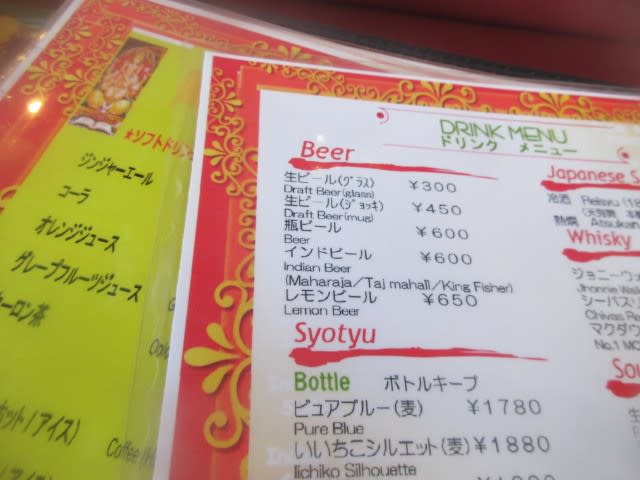 ★ソフトドリン
ジンジャーエール
コーラ
オレンジジュース
グレープフルーツジュース
ーロン茶
ホット/アイス)
Coffee
アイス)
DRINK MENU
ドリンク メニュー
Beer
生ビール(グラス) ¥300
Draft Beer(glass)
生ビール(ジョッキ) ¥450
Draft Beer(mug)
瓶ビール ¥600
Beer
インドビール ¥600
Indian Beer
(Maharaja/Taj mahall/King Fisher)
レモンビール ¥650
Lemon Beer
Syotyu
Bottle ボトルキープ
ピュアブルー(麦) ¥1780
Pure Blue
いいちこシルエット(麦) ¥1880
Iichiko Silhouette
Japanese S
冷酒 Reisyu (18
熱燗 Atsukan
Whisky
ジョニーウォ
Jhonnie Walk
シーバス
Chivas Re
マクダウ
No.1 MC
Sou